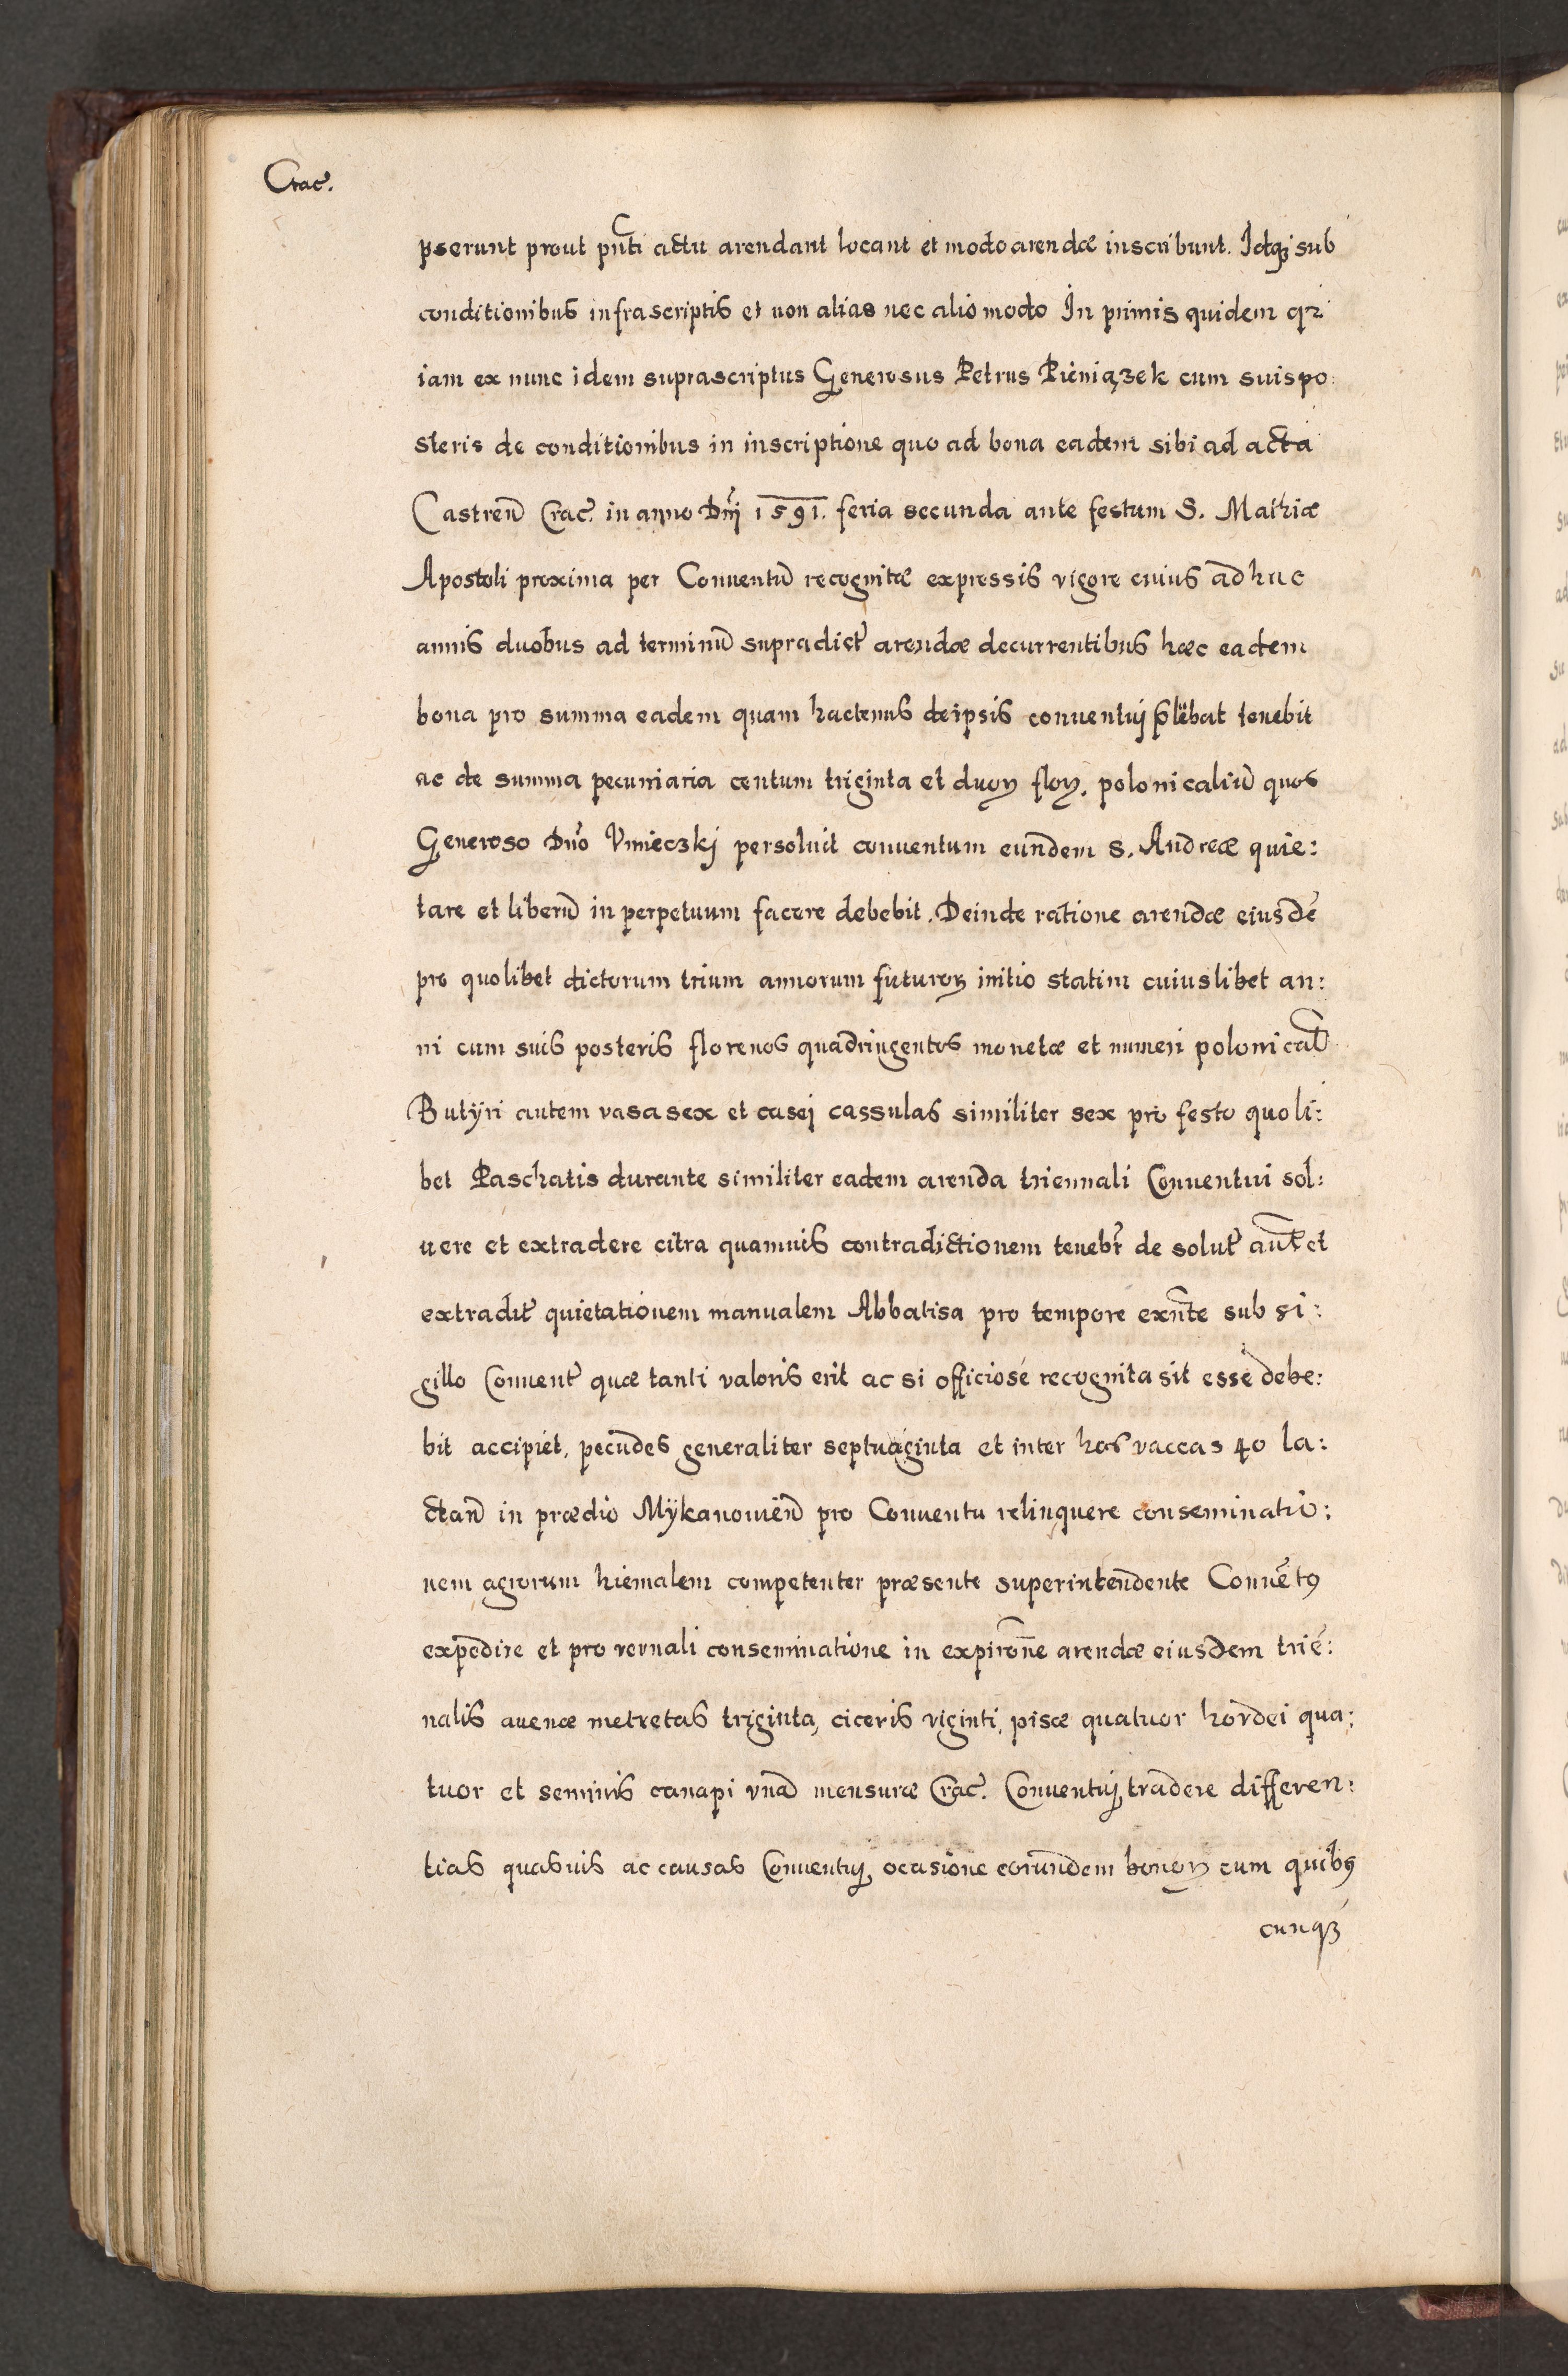 Crac̃.
pserunt prout pñti actu arendant locant et modo arendæ inscribunt. Idqꝫ sub
conditionibus infrascriptis et non alias nec alio modo In primis quidem qꝛ
iam ex nunc idem suprascriptus Generosus Petrus Pieniązek cum suis po:
steris de conditionibus in inscriptione quo ad bona eadem sibi ad acta
Castreñ Crac̃. in anno Dñj 1591. feria secunda ante festum S. Mathiæ
Apostoli proxima per Conuentũ recognitæ expressis vigore cuius ad huc
annis duobus ad terminũ supradict̃ arendæ decurrentibus hæc eadem
bona pro summa eadem quam hactenus de ipsis conuentuj tenebit
ac de summa pecuniaria centum triginta et duoꝝ floꝝ. polonicaliũ quos
Generoso Dño Vnieczkj persoluit conuentum eundem S. Andreæ quie:
tare et liberũ in perpetuum facere debebit. Deinde ratione arendæ eiusdẽ
pro quolibet dictorum trium annorum futuroꝝ initio statim cuiuslibet an:
ni cum suis posteris florenos quadringentos monetæ et numeri polonical̃
Butÿri autem vasa sex et casej cassulas similiter sex pro festo quoli:
bet Paschatis durante similiter eadem arenda triennali Conuentui sol:
uere et extradere citra quamuis contradictionem tenebr̃ de solut̃ aut̃ et
extradit̃ quietationem manualem Abbatisa pro tempore exñte sub si:
gillo Conuent̃ quæ tanti valoris erit ac si officiosé recognita sit esse debe:
bit accipiet, pecudes generaliter septuaginta et inter hos vaccas 40 la:
ctañ in prædio Mÿkanouieñ pro Conuentu relinquere conseminatio:
nem agrorum hiemalem competenter præsente superintendente Conuẽtꝰ
expedire et pro vernali conseminatione in expirõne arendæ eiusdem triẽ:
nalis auenæ metretas triginta, ciceris viginti, pisæ quatuor hordei qua:
tuor et seminis canapi vnã mensuræ Crac̃. Conuentuj tradere differen:
tias quasuis ac causas Conuentuj ocasione eorundem bonoꝝ cum quibꝰ
cunqꝫ